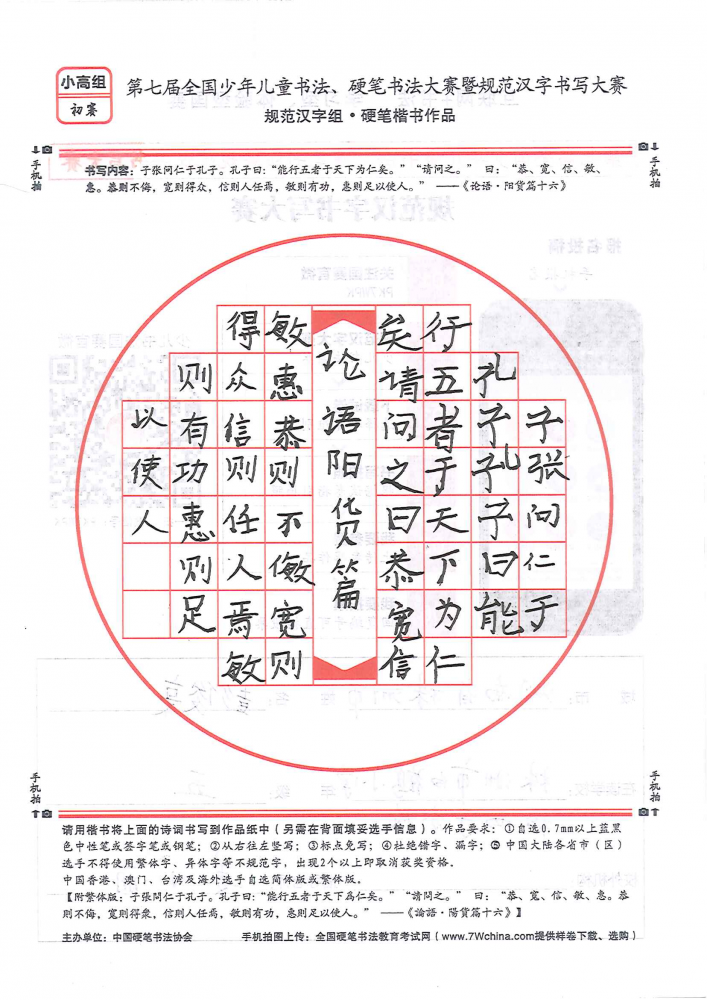 小高组
初赛
第七届全国少年儿童书法、硬笔书法大赛暨规范汉字书写大赛
规范汉字组·硬笔楷书作品
手机拍
手机拍
书写内容：子张问仁于孔子。孔子曰：“能行五者于天下为仁矣。” “请问之。” 曰：“恭、宽、信、敏、
惠。恭则不侮，宽则得众，信则人任焉，敏则有功，惠则足以使人。” ——《论语·阳货篇十六》
子张问仁于
孔子孔子曰能
行五者于天下为仁
矣请问之曰恭宽信
论语阳货篇
敏惠恭则不宽则
得众信则任人焉敏
则有功惠则足
以使人
手机拍
手机拍
请用楷书将上面的诗词书写到作品纸中（另需在背面填妥选手信息）。作品要求：①自选0.7mm以上蓝黑
色中性笔或签字笔或钢笔；②从右往左竖写；③标点免写；④杜绝错字、漏字；⑤ 中国大陆各省市（区）
选手不得使用繁体字、异体字等不规范字，出现2个以上即取消获奖资格。
中国香港、澳门、台湾及海外选手自选简体版或繁体版。
【附繁体版：子張問仁于孔子。孔子曰：“能行五者于天下爲仁矣。” “請問之。” 曰：“恭、寬、信、敏、惠。恭
則不侮，寬則得衆，信則人任焉，敏則有功，惠則足以使人。” ——《論語·陽貨篇十六》】
主办单位：中国硬笔书法协会 手机拍图上传：全国硬笔书法教育考试网（www.7Wchina.com提供样卷下载、选购）